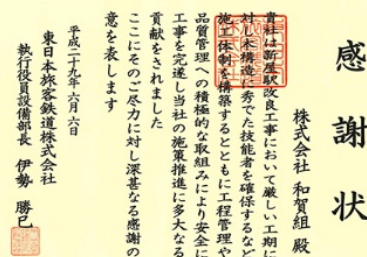 感謝状
株式会社 和賀組 殿
貴社は新屋駅改良工事において厳しい工期に
対し木構造に秀でた技能者を確保するなど
施工体制を構築するとともに工程管理や
品質管理への積極的な取組みにより安全に
工事を完遂し当社の施策推進に多大なる
貢献をされました
ここにそのご尽力に対し深甚なる感謝の
意を表します
平成二十九年六月六日
東日本旅客鉄道株式会社
執行役員設備部長 伊勢 勝巳